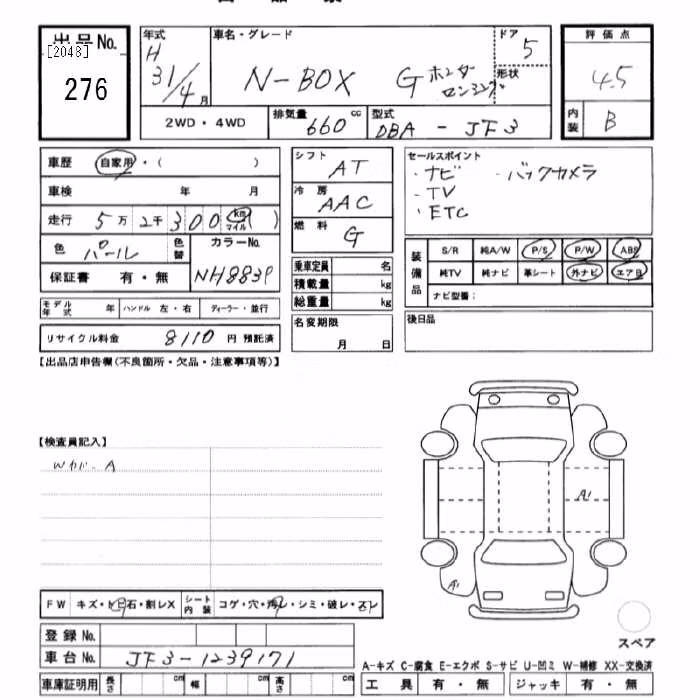 出品No. [2048] 276
年式 H 31/4月
車名・グレード N-BOX G ホンダ
ドア 5
形状
評価点 4.5
2WD・4WD
排気量 660 cc
型式 DBA - JF3
内装 B
車歴 自家用・( )
シフト AT
セールスポイント
・ナビ ・バックカメラ
・TV
・ETC
車検 年 月
冷房 AAC
走行 5万2千300 km マイル )
燃料 G
色 パール 色替
カラーNo. NH883P
装備品
S/R 純A/W P/S P/W ABS
純TV 純ナビ 革シート 外ナビ エアB
ナビ型番:
保証書 有・無
乗車定員 名
積載量 kg
総重量 kg
モデル年式 年 ハンドル 左・右 ディーラー・並行
リサイクル料金 8110 円 預託済
名変期限 月 日
後日品
【出品店申告欄(不良箇所・欠品・注意事項等)】
【検査員記入】
A1
A1
FW キズ・トビ石・割レX シート内装 コゲ・穴・汚レ・シミ・破レ・スレ
登録No.
車台No. JF3-1239171
スペア
A-キズ C-腐食 E-エクボ S-サビ U-凹ミ W-補修 XX-交換済
車庫証明用 長さ cm 幅 cm 高さ cm
工具 有・無 ジャッキ 有・無